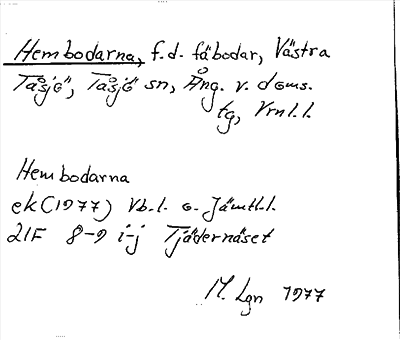 Hembodarna, f.d. fäbodar, Västra
Tåsjö, Tåsjö sn, Ång. v. doms.
tg, Vrnl.l.
Hembodarna
ek (1977) Vb.l. o. Jämtl.l.
21F 8-9 i-j Tjädernäset
M. Lgn 1977